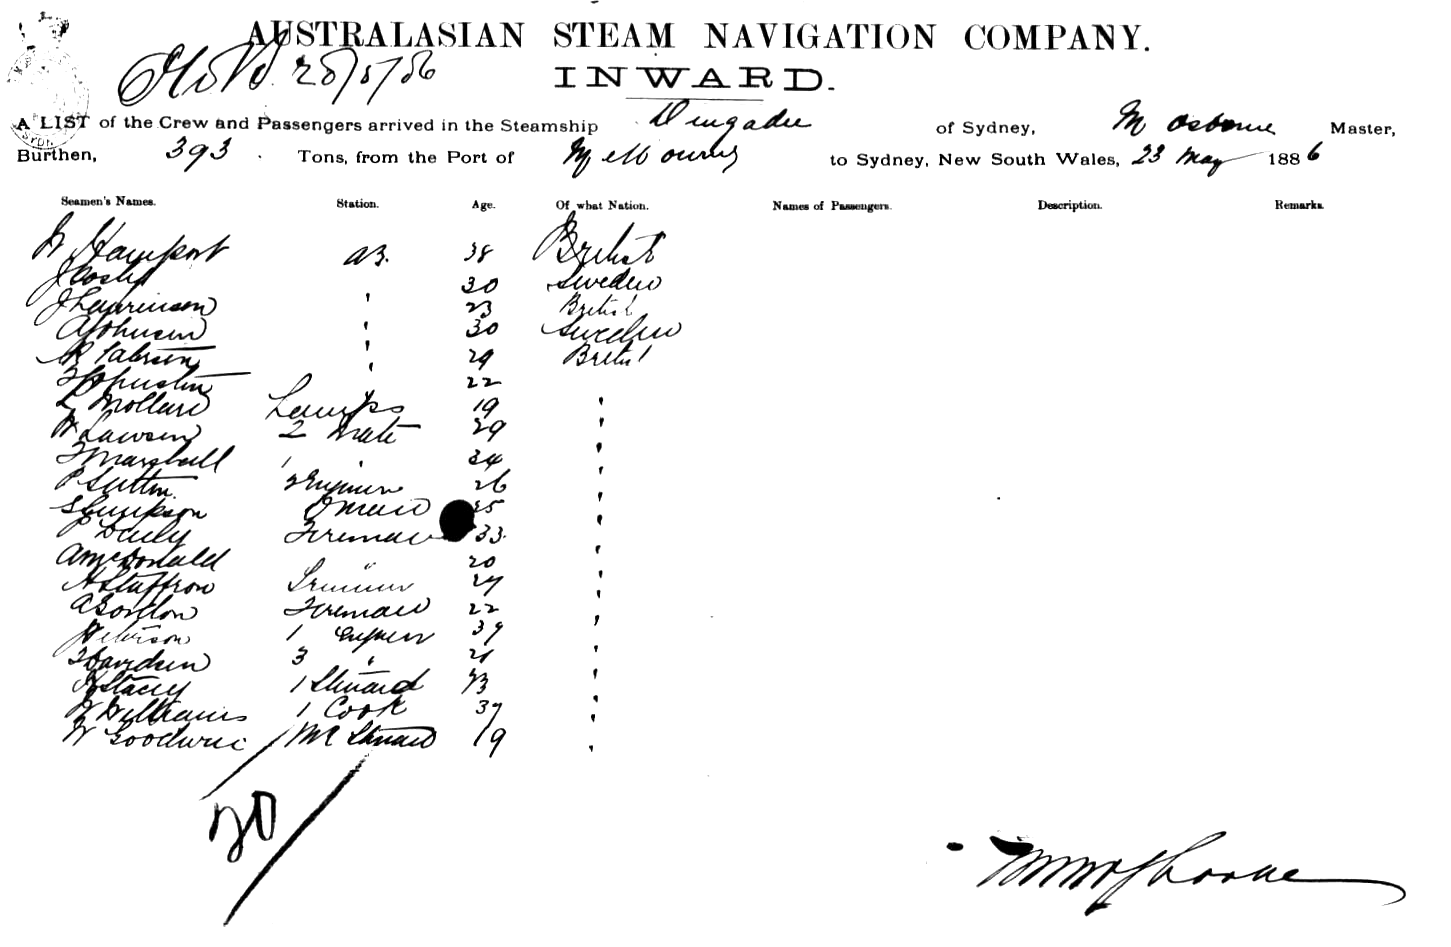 AUSTRALASIAN STEAM NAVIGATION COMPANY.
28/5/86
INWARD.
A LIST of the Crew and Passengers arrived in the Steamship Dingadee of Sydney, M Osborne Master,
Burthen, 393 Tons, from the Port of Melbourne to Sydney, New South Wales, 23 May 1886
Seamen's Names. Station. Age. Of what Nation. Names of Passengers. Description. Remarks.
W AB. 38 British
J 30 Sweden
J Laurenson " 23 British
A Johnson " 30 Sweden
R Paterson " 29 British
" 22
Mollard Lamps 19 "
W Lawson 2 Mate 29 "
T Marshall 1 " 34 "
P Sutton 26 "
S Simpson 35 "
P Daily Fireman 33 "
A McDonald " 20 "
A Trimmer 27 "
A Gordon Fireman 22 "
1 39 "
T Davidson 3 " 21 "
H Stacey 1 Steward 23 "
W Williams 1 Cook 37 "
W Goodwin Steward 19 "
20